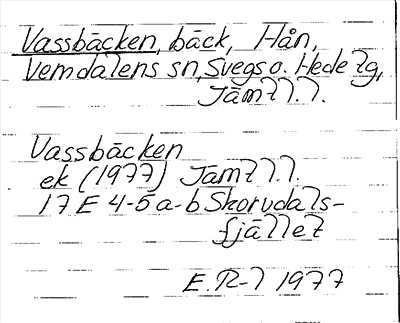 Vassbäcken, bäck, Hån,
Vemdalens sn, Svegs o. Hede tg,
Jämtl.l.
Vassbäcken
ek (1977) Jämtl.l.
17E 4-5 a-b Skorvdals-
fjället
E.R-l 1977